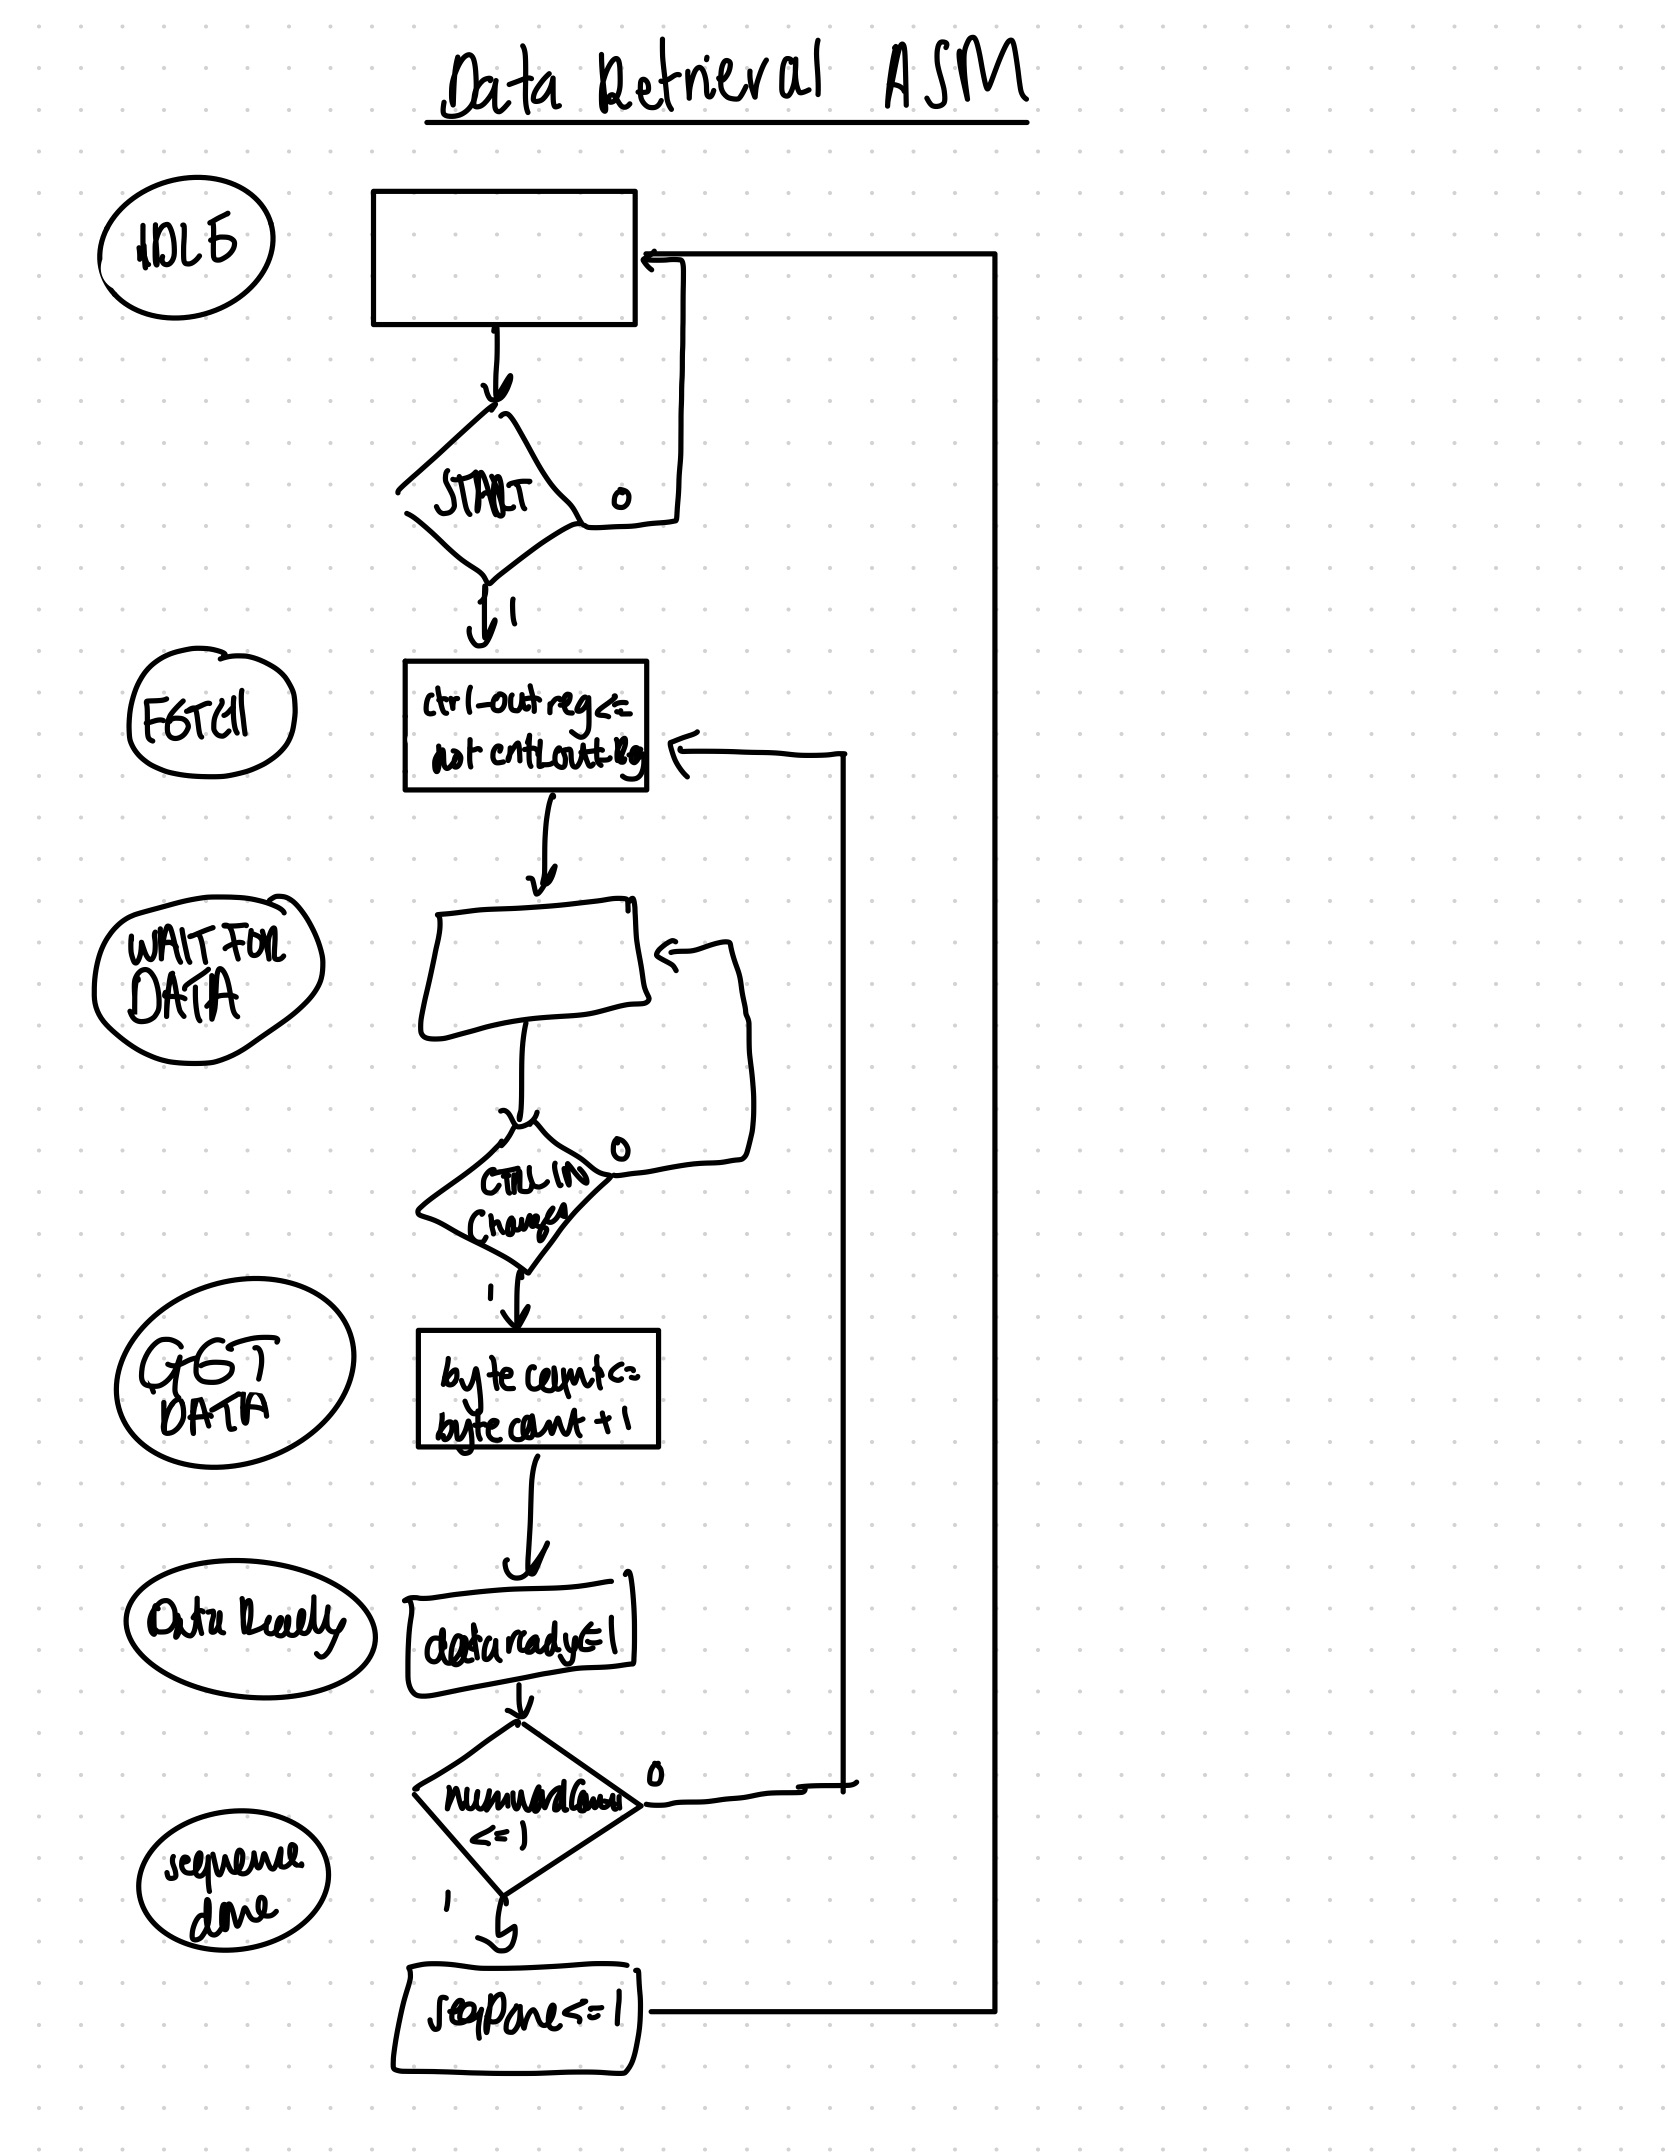 Data Retrieval ASM
IDLE
START
0
1
FETCH
ctrl-out reg <=
not cntLoutReg
WAIT FOR
DATA
CTRL IN
Changed
0
1
GET
DATA
byte count <=
byte count + 1
Data Ready
data ready <= 1
0
<= 1
1
sequence
done
seqDone <= 1